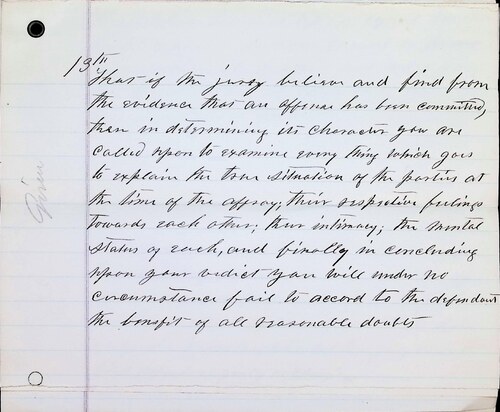 13th
That if the jury believe and find from
the evidence that an offense has been committed,
then in determining its character you are
called upon to examine every thing which goes
to explain the true situation of the parties at
the time of the affray; their respective feelings
towards each other; their intimacy; the mental
status of each, and finally in concluding
upon your verdict you will under no
circumstance fail to accord to the defendant
the benefit of all reasonable doubts
Given